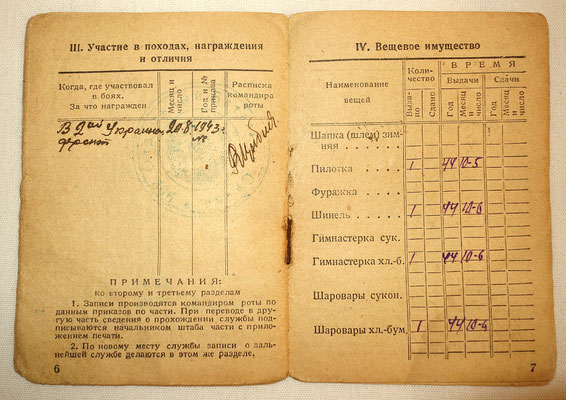 III. Участие в походах, награждения
и отличия
Когда, где участвовал
в боях.
За что награжден
Месяц и
число
Год и №
приказа
Расписка
командира
роты
В 2ой Украин. 20-8-1943 г.
фронт №
ПРИМЕЧАНИЯ:
ко второму и третьему разделам
1. Записи производятся командиром роты по
данным приказов по части. При переводе в дру-
гую часть сведения о прохождении службы под-
писываются начальником штаба части с прило-
жением печати.
2. По новому месту службы записи о даль-
нейшей службе делаются в этом же разделе,
6
IV. Вещевое имущество
Наименование
вещей
Коли-
чество
ВРЕМЯ
Выдачи
Сдачи
Выда-
но
Сдано
Год
Месяц
и
число
Год
Месяц
и
число
Шапка (шлем) зим-
няя . . . . .
Пилотка . . . . 1 44 10-5
Фуражка . . . .
Шинель . . . . . 1 44 10-6
Гимнастерка сук.
Гимнастерка хл.-б. 1 44 10-6
Шаровары сукон.
Шаровары хл.-бум. 1 44 10-6
7